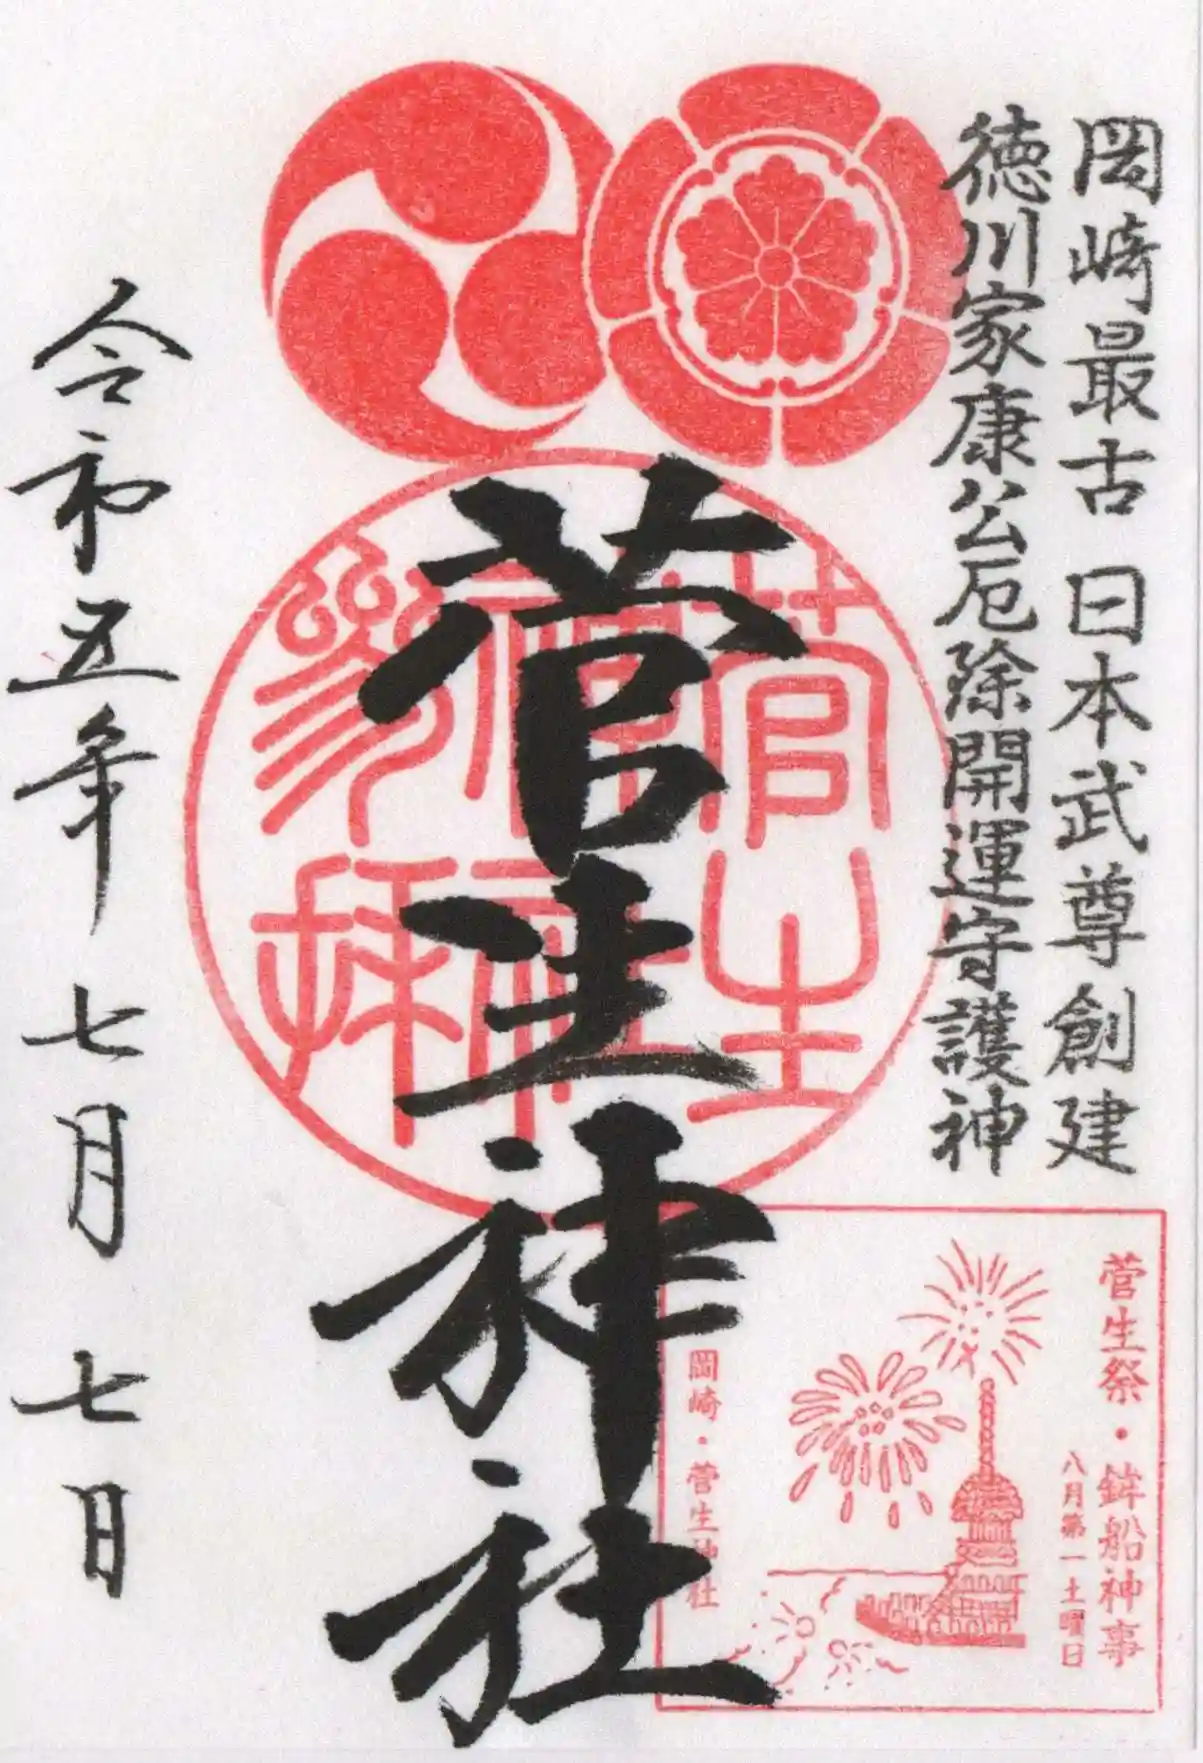 岡崎最古 日本武尊創建
徳川家康公厄除開運守護神
菅生神社
令和五年 七月 七日
菅生祭・鉾船神事
八月第一土曜日
岡崎・菅生神社
菅生